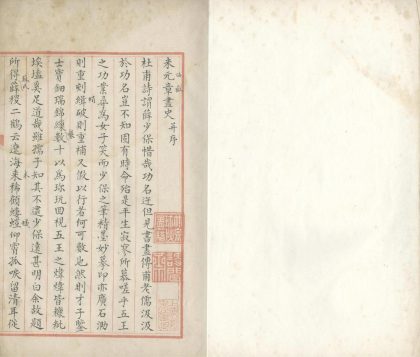 米元章畫史 并序
杜甫詩謂薛少保惜哉功名迕但見書畫傳甫老儒汲汲
於功名豈不知固有時命殆是平生寂寥所慕嗟乎五王
之功業尋為女子笑而少保之筆精墨妙摹印亦廣石泐
則重刻絹破則重補又假以行者何可數也然則才子鑒
士寶鈿瑞錦繅數十以為珎玩回視五王之煒煒皆糠粃
埃壒奚足道哉雖孺子知其不逮少保遠甚明白余故題
所得薛稷二鶴云遼海未稀顧螻蟻仰霄孤唳留清耳從